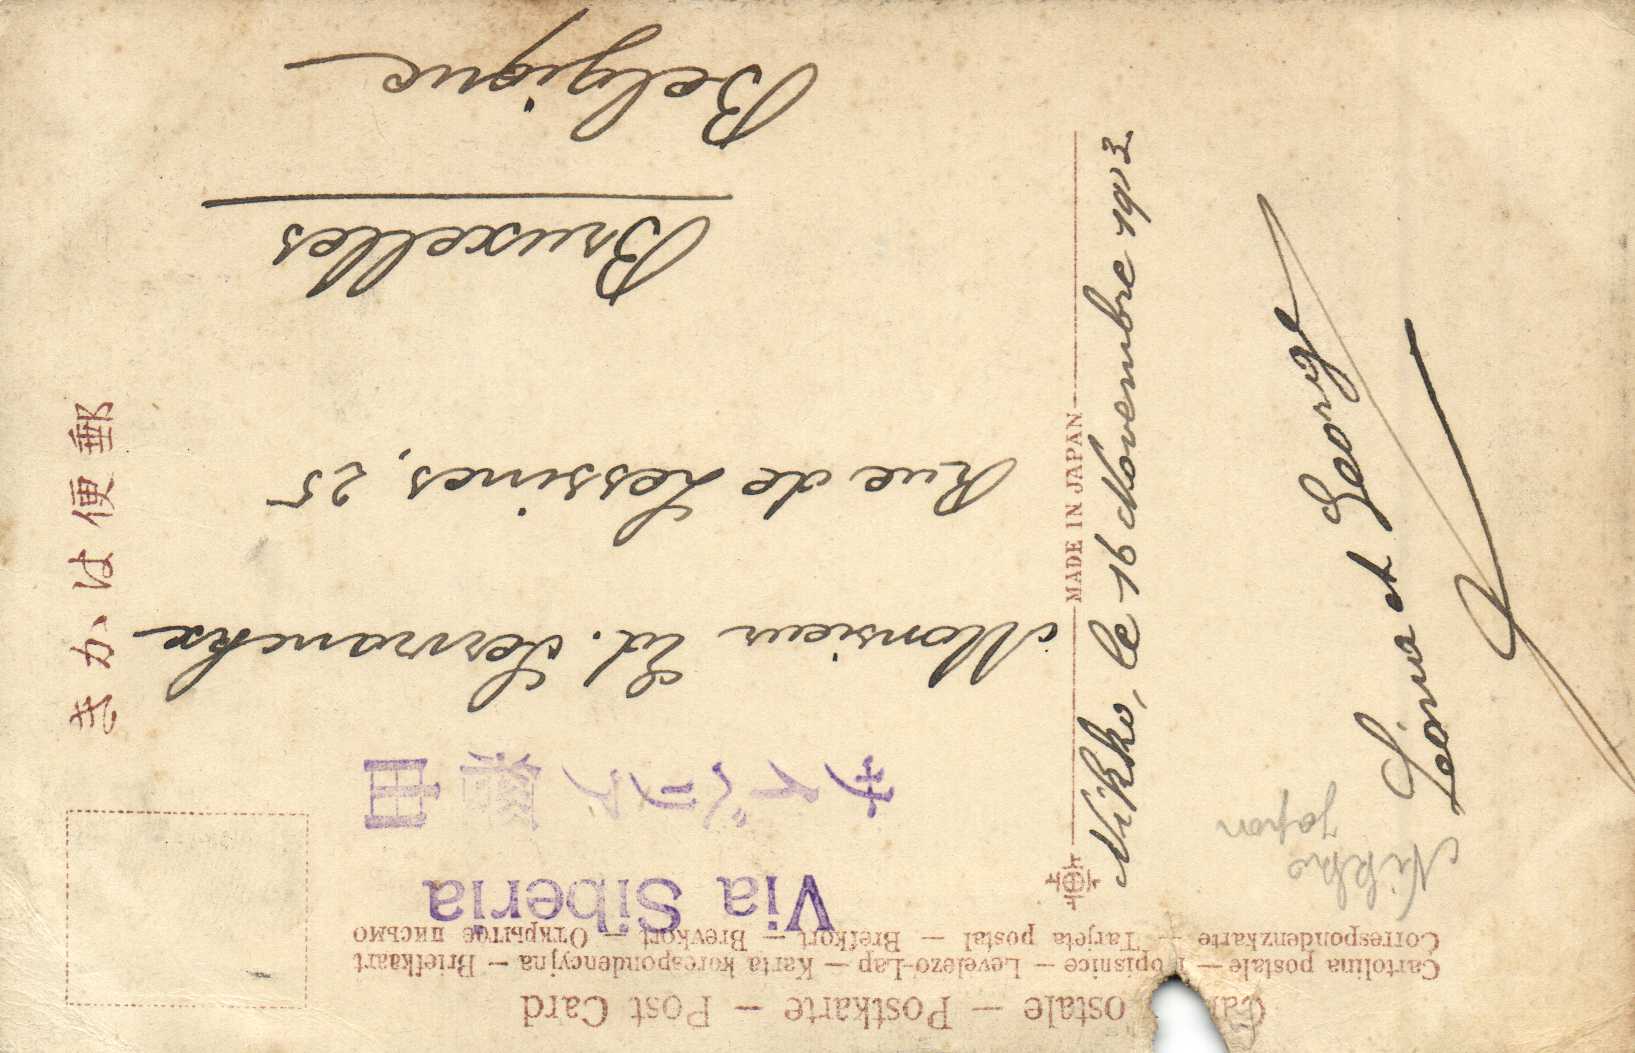 ostale – Postkarte – Post Card
Cartolina postale – Levelezo-Lap – Karta korespondencyjna – Briefkaart
Correspondenzkarte – Tarjeta postal – Brefkort – Brevkort – Открытое письмо
Via Siberia
サイベリア經由
郵便はかき
Monsieur Ed. Servranckx
Rue de Lessines, 25
Bruxelles
Belgique
MADE IN JAPAN
Nikko, le 16 Novembre 1913.
Léona et George
Nikko
Japon